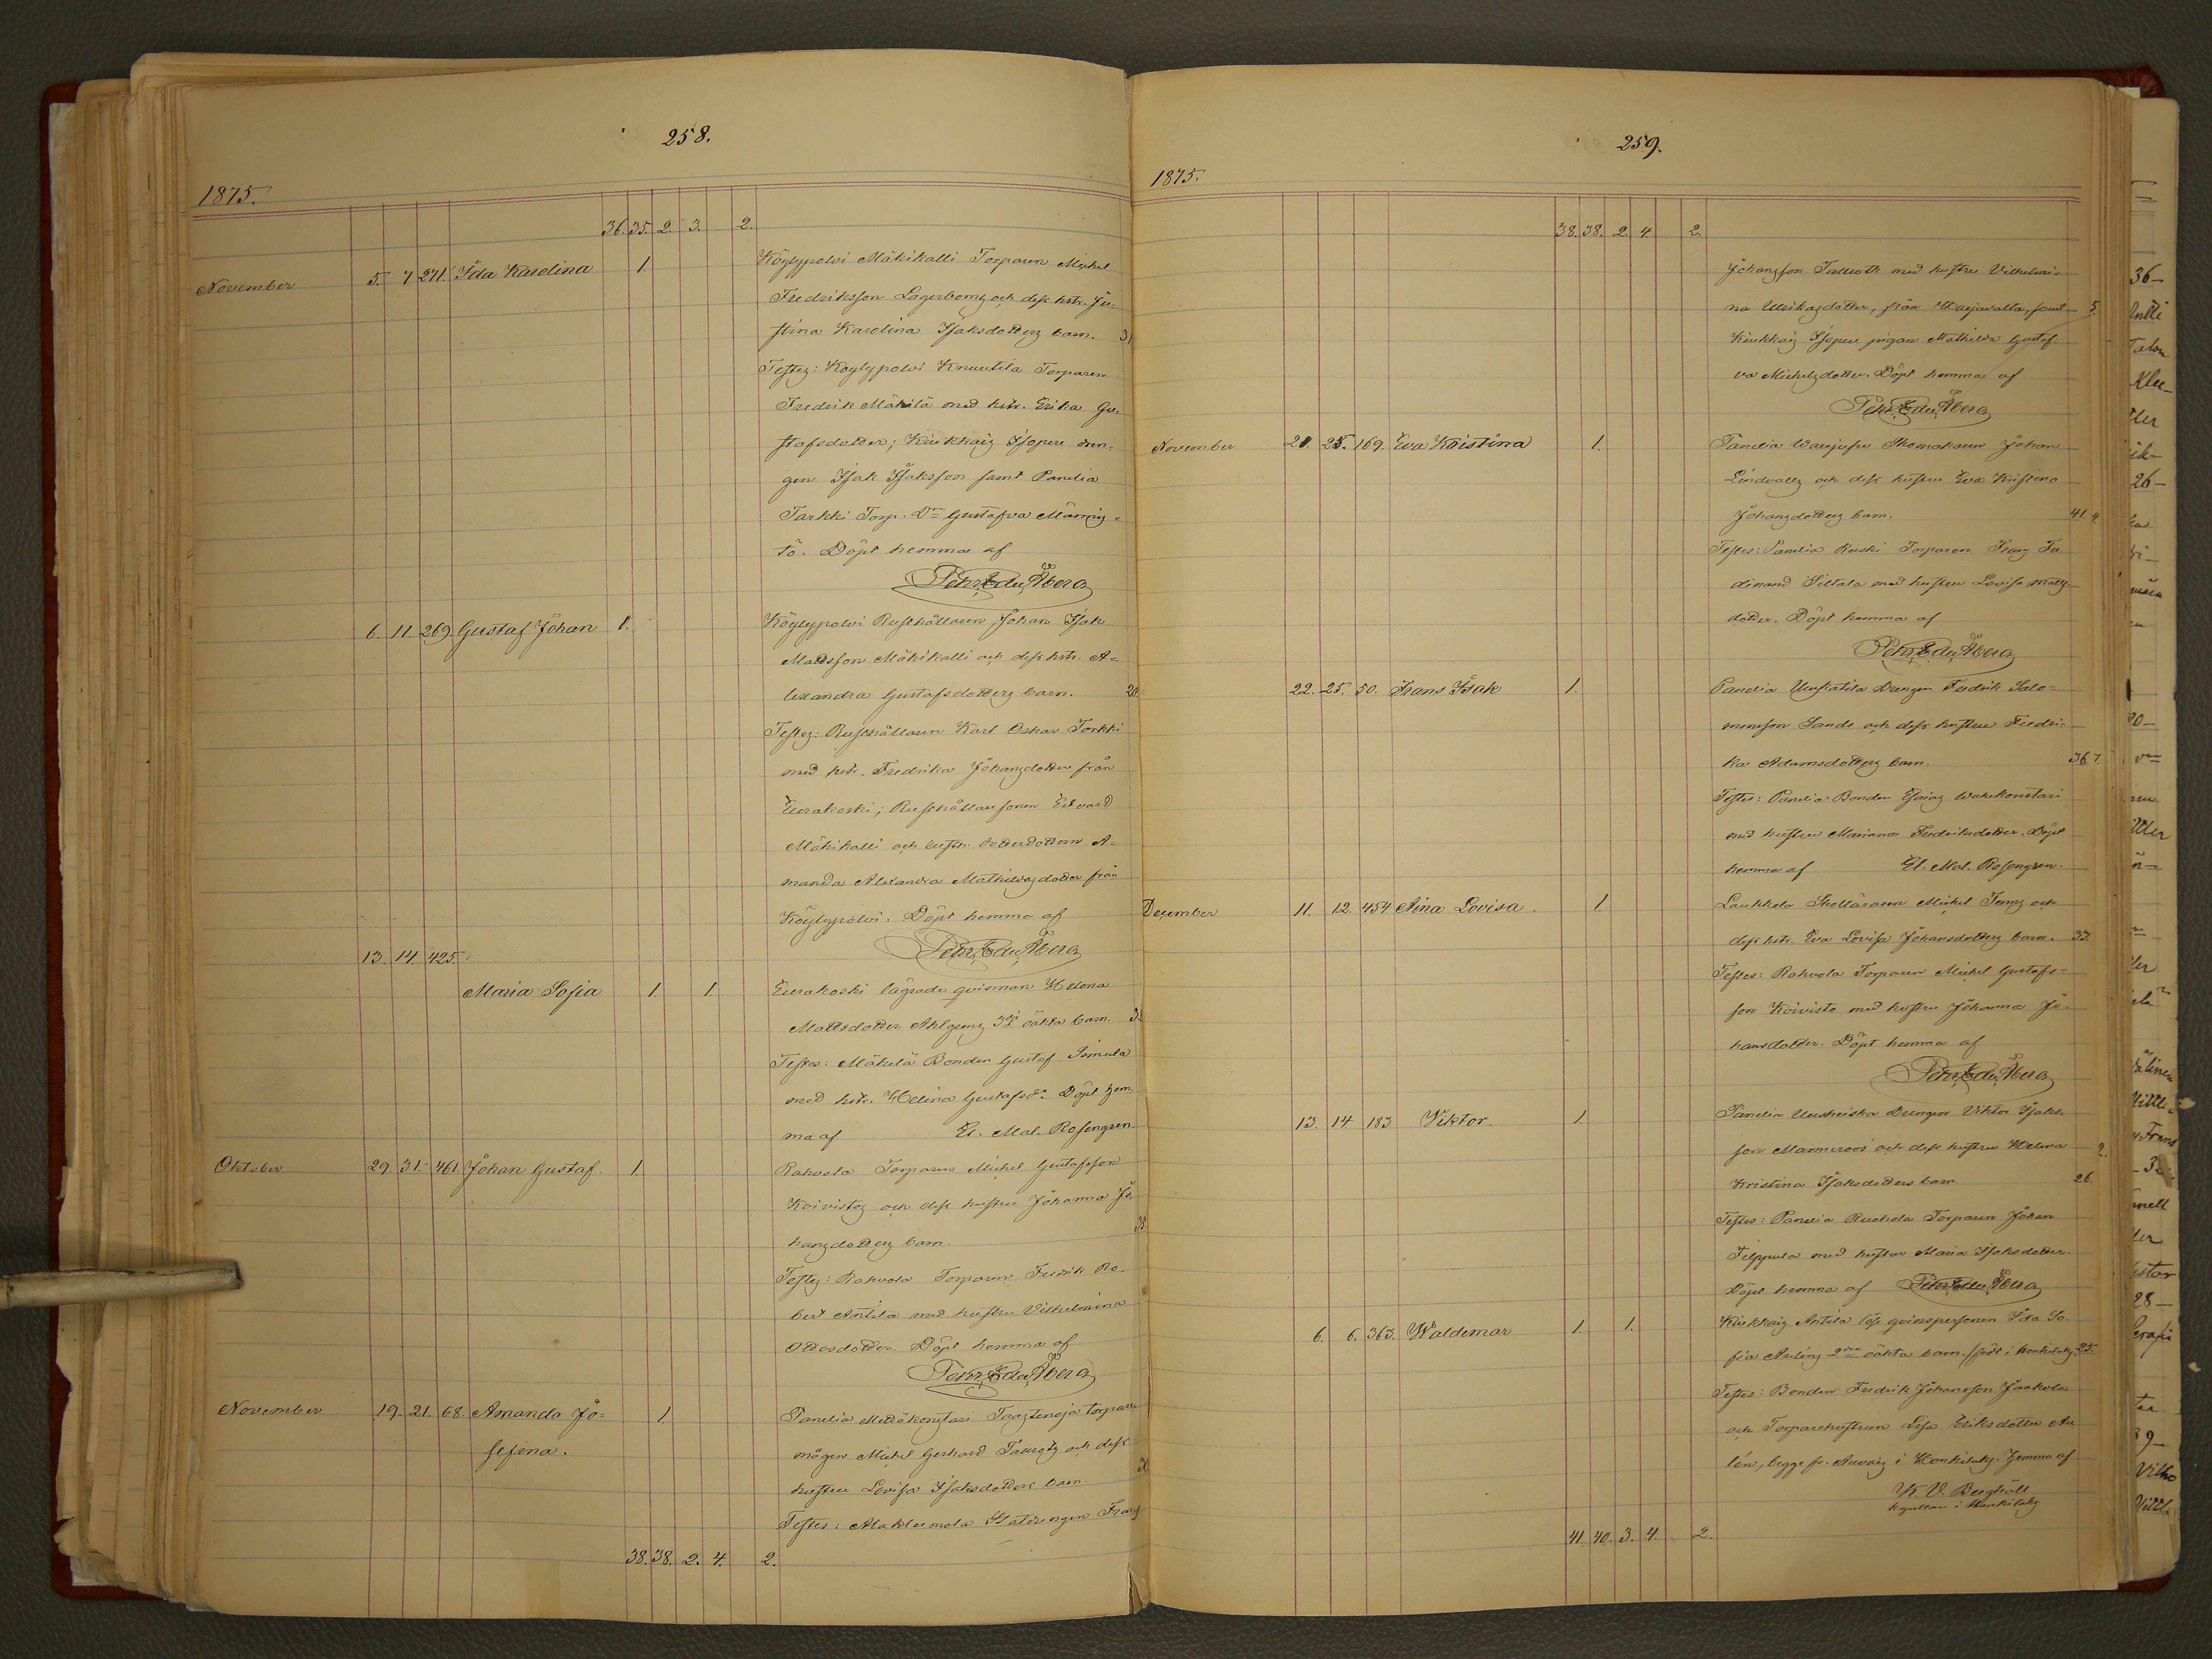 258.
1875.
36. 35. 2. 3. 2.
November 5. 7. 271. Ida Karolina 1. Köylypolvi Mäkikalli Torparen Michel
Fredriksson Lagerbomz och dess hstr. Ju-
stina Karolina Isaksdotters barn. 31
Testes: Köylypolvi Knuutila Torparen
Fredrik Mäkilä med hstr. Erika Gu-
stafsdotter; Kiukkais Isopere dren-
gen Isak Isaksson samt Panelia
Tarkki Torp. Dr Gustafva Männis-
tö. Döpt hemma af
Petr. Edu. Åberg
6. 11. 269. Gustaf Johan 1. Köylypolvi Rusthållaren Johan Isak
Mattsson Mäkikalli och dess hstr. A-
lexandra Gustafsdotters barn. 20
Testes: Rusthållaren Karl Oskar Torkki
med hstr. Fredrika Johansdotter från
Eurakoski; Rusthållaresonen Edvard
Mäkikalli och dotterdottern A-
manda Alexandra Mathildasdotter från
Köylypolvi. Döpt hemma af
Petr. Edu. Åberg
13. 14. 425.
Maria Sofia 1. 1. Eurakoski lägrade qvinnan Helena
Mattsdotter Ahlgrens 3dj oäkta barn. 3
Testes: Mäkelä Bonden Gustaf Simula
med hstr. Helena Gustafsdr Döpt hem-
ma af El. Mal. Rosengren.
Oktober 29. 31. 461. Johan Gustaf. 1. Rahvola Torparen Michel Gustafsson
Koivistos och dess hustru Johanna Jo-
hansdotters barn. 33
Testes: Rahvola Torparen Fredrik Ro-
bert Antila med hustru Vilhelmina
Ottosdotter. Döpt hemma af
Petr. Edu. Åberg
November 19. 21. 68. Amanda Jo- 1 Panelia torpare-
sefina. mågen Michel Gerhard och dess
hustru Lovisa Isaksdotters barn.
Testes: Frans
38. 38. 2. 4. 2.
259.
1875.
38. 38. 2. 4. 2.
Johansson Tallroth med hustru Vilhelmi-
na Ulrikasdotter, från Harjavalta, samt 5.
Kiukkais Isopere pigan Mathilda Gustaf
va Michelsdotter. Döpt hemma af
Petr. Edu. Åberg
November 21. 25. 169. Eva Kristina 1. Panelia Skomakaren Johan
Lindvalls och dess hustru Eva Kristina
Johansdotters barn. 41. 4.
Testes: Panelia Torparen Frans Fer
dinand Siltala med hustru Lovisa Matts
dotter. Döpt hemma af
Petr. Edu. Åberg
22. 25. 50. Frans Isak 1. Panelia Uusitalo Drengen Fredrik Salo-
monsson Sands och dess hustru Fredri-
ka Adamsdotters barn. 36. 7.
Testes: Panelia Bonden Esaias
med hustru Mariana Fredriksdotter. Döpt
hemma af El. Mal. Rosengren.
December 11. 12. 454. Aina Lovisa. 1. Laukkola Skolläraren Michel och
dess hstr. Eva Lovisa Johansdotters barn. 33.
Testes: Rahvola Torparen Michel Gustafs-
son Koivisto med hustru Johanna Jo-
hansdotter. Döpt hemma af
Petr. Edu. Åberg
13. 14 183. Viktor. 1. Panelia Drengen Viktor Isaks-
son och dess hustru Helena 2.
Kristina Isaksdotters barn 26.
Testes: Panelia Torparen Johan
Filppula med hustru Maria Isaksdotter.
Döpt hemma af Petr. Edu. Åberg
6. 6. 363. Waldemar 1. 1. Kiukkais Antila lös qvinspersonen Ida So-
fia 2dra oäkta barn. /född i Honkilaks. 25.
Testes: Bonden Fredrik Johansson Jaakola
och Torparehustrun Lisa Eriksdotter Au
lén, begge fr. i Honkilaks. Hemma af
K. V. Bergroth
i Honkilaks
41. 40. 3. 4. 2.